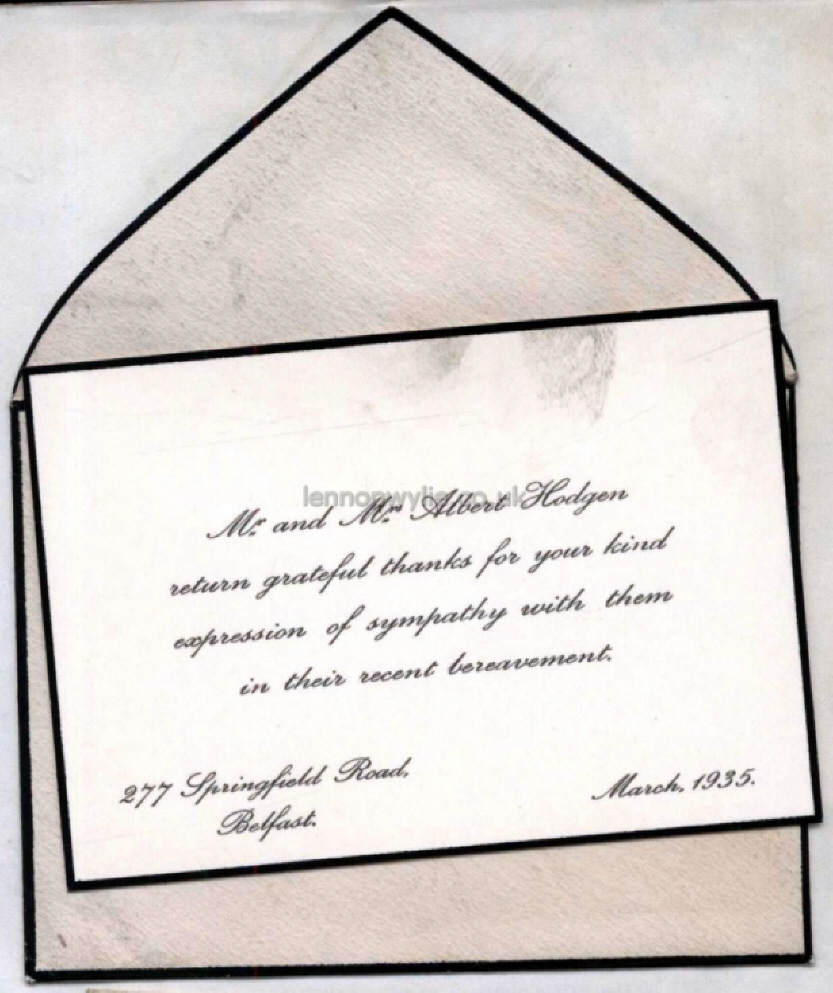 lennonwylie.co.uk
Mr. and Mrs. Albert Hodgen
return grateful thanks for your kind
expression of sympathy with them
in their recent bereavement.
277 Springfield Road,
Belfast.
March, 1935.